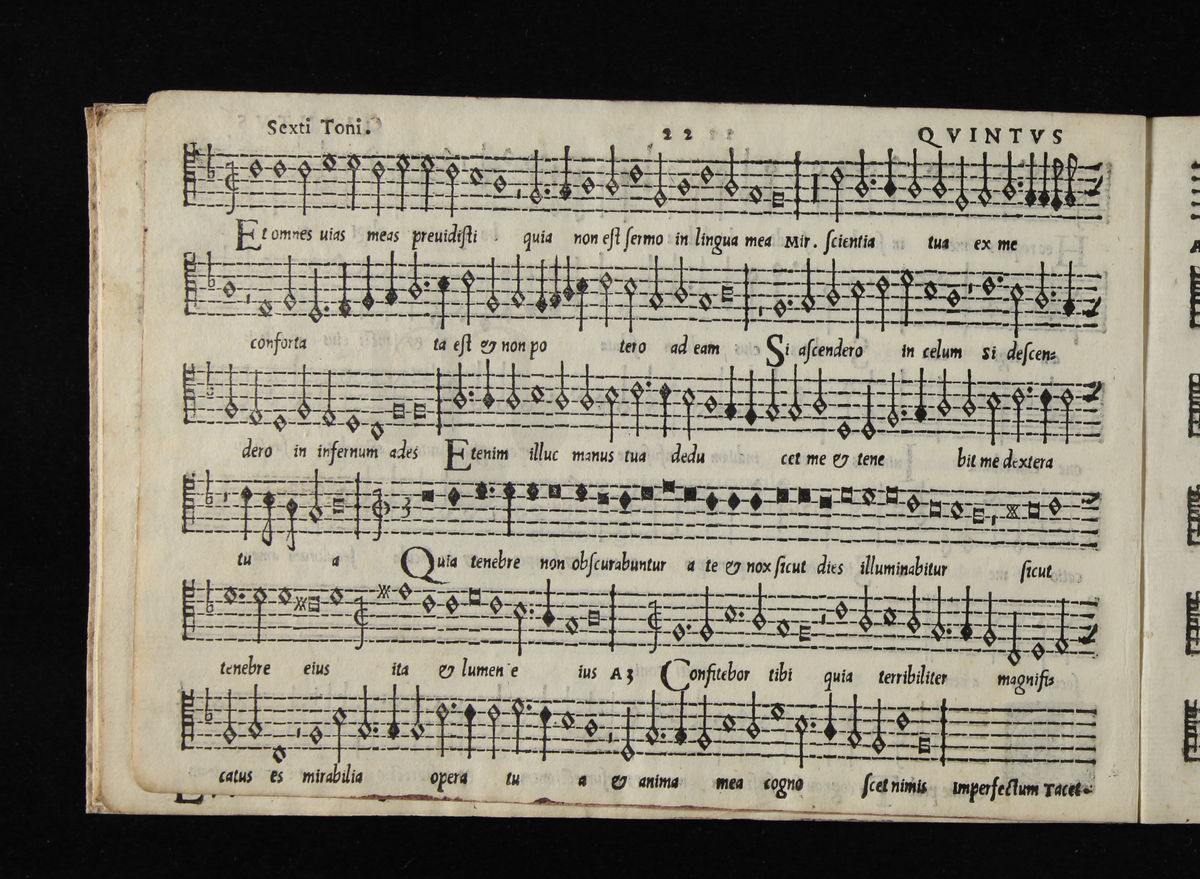 Sexti Toni. 22 QVINTVS
Et omnes uias meas preuidisti quia non est sermo in lingua mea Mir. scientia tua ex me
conforta ta est & non po tero ad eam Si ascendero in celum si descen=
dero in infernum ades Etenim illuc manus tua dedu cet me & tene bit me dextera
tu a Quia tenebre non obscurabuntur a te & nox sicut dies illuminabitur sicut
tenebre eius ita & lumen e ius A3 Confitebor tibi quia terribiliter magnifi=
catus es mirabilia opera tu a & anima mea cogno scet nimis Imperfectum Tacet.